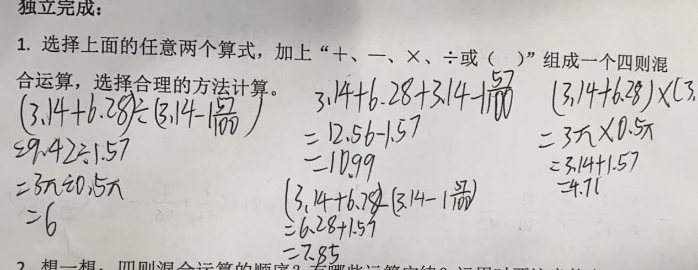 独立完成：
1. 选择上面的任意两个算式，加上“＋、—、×、÷或（ ）”组成一个四则混
合运算，选择合理的方法计算。
(3.14+6.28)÷(3.14-1 57/100)
=9.42÷1.57
=3π÷0.5π
=6
3.14+6.28+3.14-1 57/100
=12.56-1.57
=10.99
(3.14+6.28)-(3.14-1 57/100)
=6.28+1.57
=7.85
(3.14+6.28)×(3.
=3π×0.5π
=3.14+1.57
=4.71
2. 想一想：四则混合运算的顺序？有哪些运算定律？